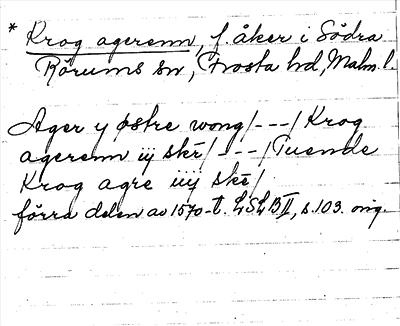 * Krog agerenn, f. åker i Södra
Rörums sn, Frosta hd, Malm. l.
Ager y østre wong/---/Krog
agerenn iij skē/---/Tuende
Krog agre iiij skē/
förra delen av 1570-t. LSLB II, s. 103. orig.